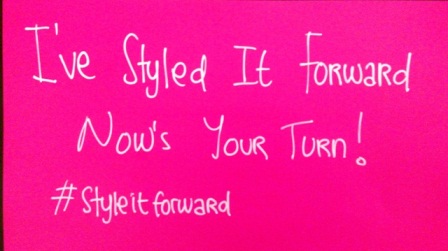 I've Styled It Forward
Now's Your Turn!
#Styleitforward